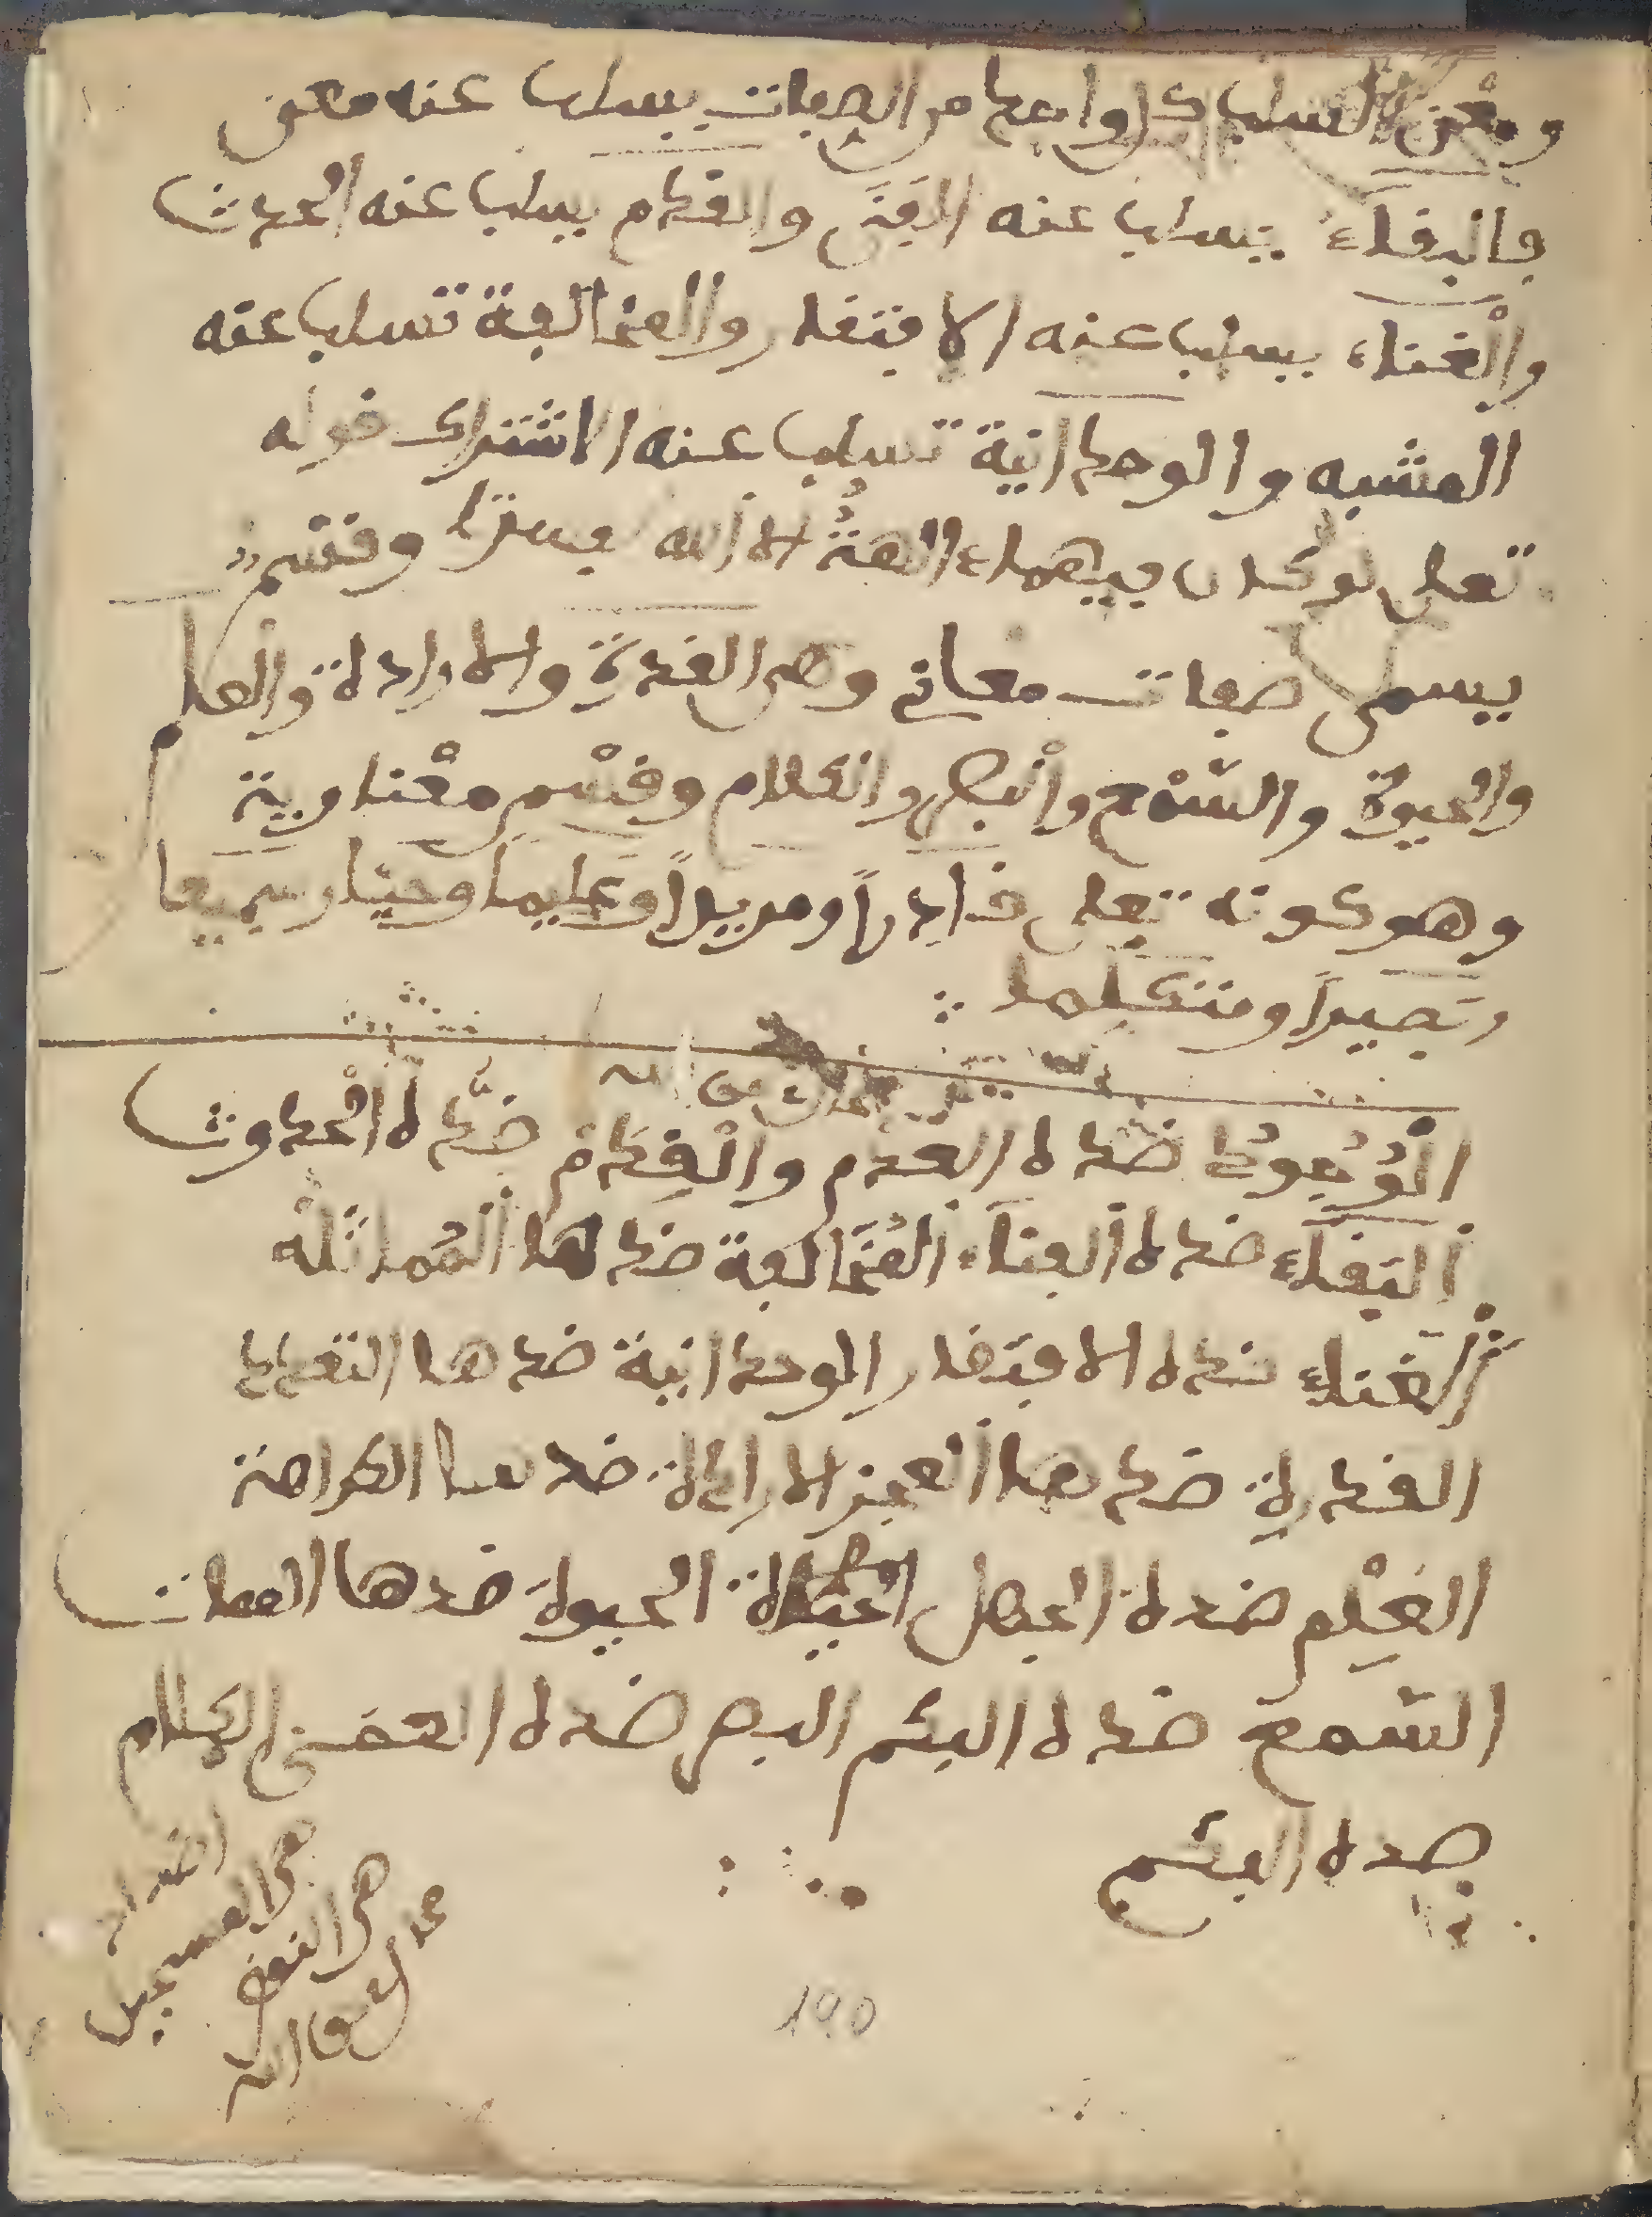 ومعنى السلب كل واحد من الصفات يسلب عنه معنى
فالبفاء يسلب عنه الفنى والقدم يسلب عنه الحدث
والغناء يسلب عنه الافتقار والمخالفة تسلب عنه
المشبه والوحدانية تسلب عنه الاشتراك قوله
تعلى لوكان فيهماء الهة الا الله لفسدتا وقسم
يسمى صفات معاني وهي القدرة والارادة والعلم
والحيوة والسمع والبصر والكلام وقسم معناوية
وهو كونه تعلى قادرا ومريدا وعليما وحيا وسميعا
وبصيرا ومتكلما
الوجود ضده العدم والقدم ضده الحدوث
البقاء ضده الفناء المخالفة ضدها المماثلة
الغناء ضده الافتقار الوحدانية ضدها التعدد
القدرة ضدها العجز الارادة ضدها الكراهة
العلم ضده الجهل الحيوة ضدها الممات
السمع ضده البكم البصر ضده العمى الكلام
ضده البكم
190